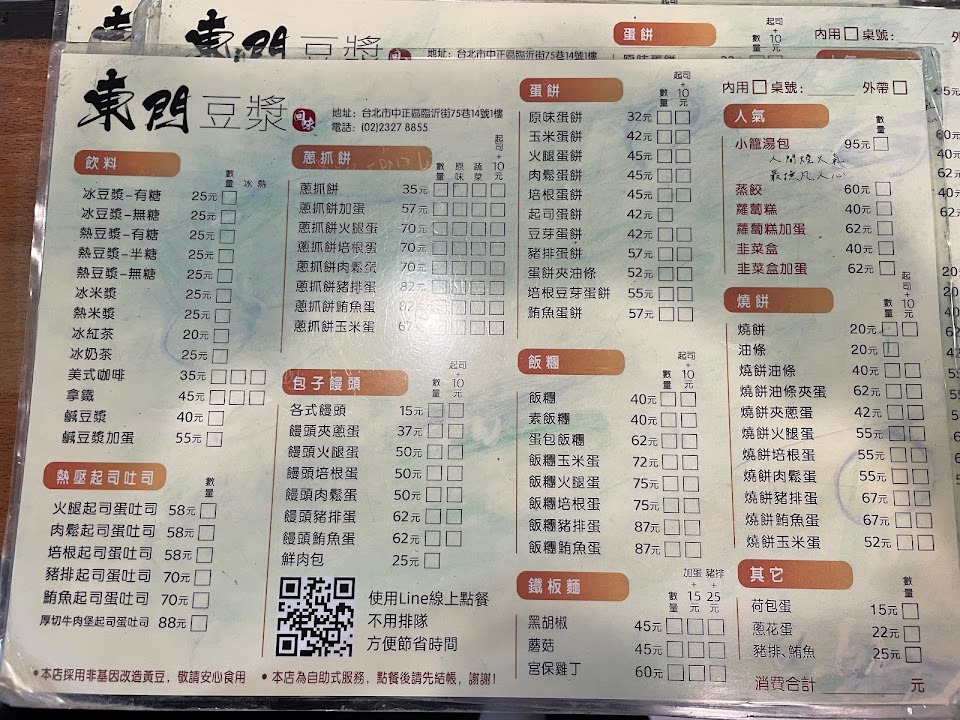 東門豆漿 回味
地址: 台北市中正區臨沂街75巷14號1樓
電話: (02)2327 8855
內用□ 桌號: 外帶□
飲料
數量 冰 熱
冰豆漿-有糖 25元
冰豆漿-無糖 25元
熱豆漿-有糖 25元
熱豆漿-半糖 25元
熱豆漿-無糖 25元
冰米漿 25元
熱米漿 25元
冰紅茶 20元
冰奶茶 25元
美式咖啡 35元
拿鐵 45元
鹹豆漿 40元
鹹豆漿加蛋 55元
熱壓起司吐司
數量
火腿起司蛋吐司 58元
肉鬆起司蛋吐司 58元
培根起司蛋吐司 58元
豬排起司蛋吐司 70元
鮪魚起司蛋吐司 70元
厚切牛肉堡起司蛋吐司 88元
蔥抓餅
數量 原味 蔬菜 起司+10元
蔥抓餅 35元
蔥抓餅加蛋 57元
蔥抓餅火腿蛋 70元
蔥抓餅培根蛋 70元
蔥抓餅肉鬆蛋 70元
蔥抓餅豬排蛋 82元
蔥抓餅鮪魚蛋 82元
蔥抓餅玉米蛋 67元
包子饅頭
數量 起司+10元
各式饅頭 15元
饅頭夾蔥蛋 37元
饅頭火腿蛋 50元
饅頭培根蛋 50元
饅頭肉鬆蛋 50元
饅頭豬排蛋 62元
饅頭鮪魚蛋 62元
鮮肉包 25元
使用Line線上點餐
不用排隊
方便節省時間
蛋餅
數量 起司+10元
原味蛋餅 32元
玉米蛋餅 42元
火腿蛋餅 45元
肉鬆蛋餅 45元
培根蛋餅 45元
起司蛋餅 42元
豆芽蛋餅 42元
豬排蛋餅 57元
蛋餅夾油條 52元
培根豆芽蛋餅 55元
鮪魚蛋餅 57元
飯糰
數量 起司+10元
飯糰 40元
素飯糰 40元
蛋包飯糰 62元
飯糰玉米蛋 72元
飯糰火腿蛋 75元
飯糰培根蛋 75元
飯糰豬排蛋 87元
飯糰鮪魚蛋 87元
鐵板麵
數量 加蛋+15元 豬排+25元
黑胡椒 45元
蘑菇 45元
宮保雞丁 60元
人氣
數量
小籠湯包 95元
人間煙火氣
最撫凡人心
蒸餃 60元
蘿蔔糕 40元
蘿蔔糕加蛋 62元
韭菜盒 40元
韭菜盒加蛋 62元
燒餅
數量 起司+10元
燒餅 20元
油條 20元
燒餅油條 40元
燒餅油條夾蛋 62元
燒餅夾蔥蛋 42元
燒餅火腿蛋 55元
燒餅培根蛋 55元
燒餅肉鬆蛋 55元
燒餅豬排蛋 67元
燒餅鮪魚蛋 67元
燒餅玉米蛋 52元
其它
數量
荷包蛋 15元
蔥花蛋 22元
豬排、鮪魚 25元
消費合計 元
•本店採用非基因改造黃豆,敬請安心食用 •本店為自助式服務,點餐後請先結帳,謝謝!